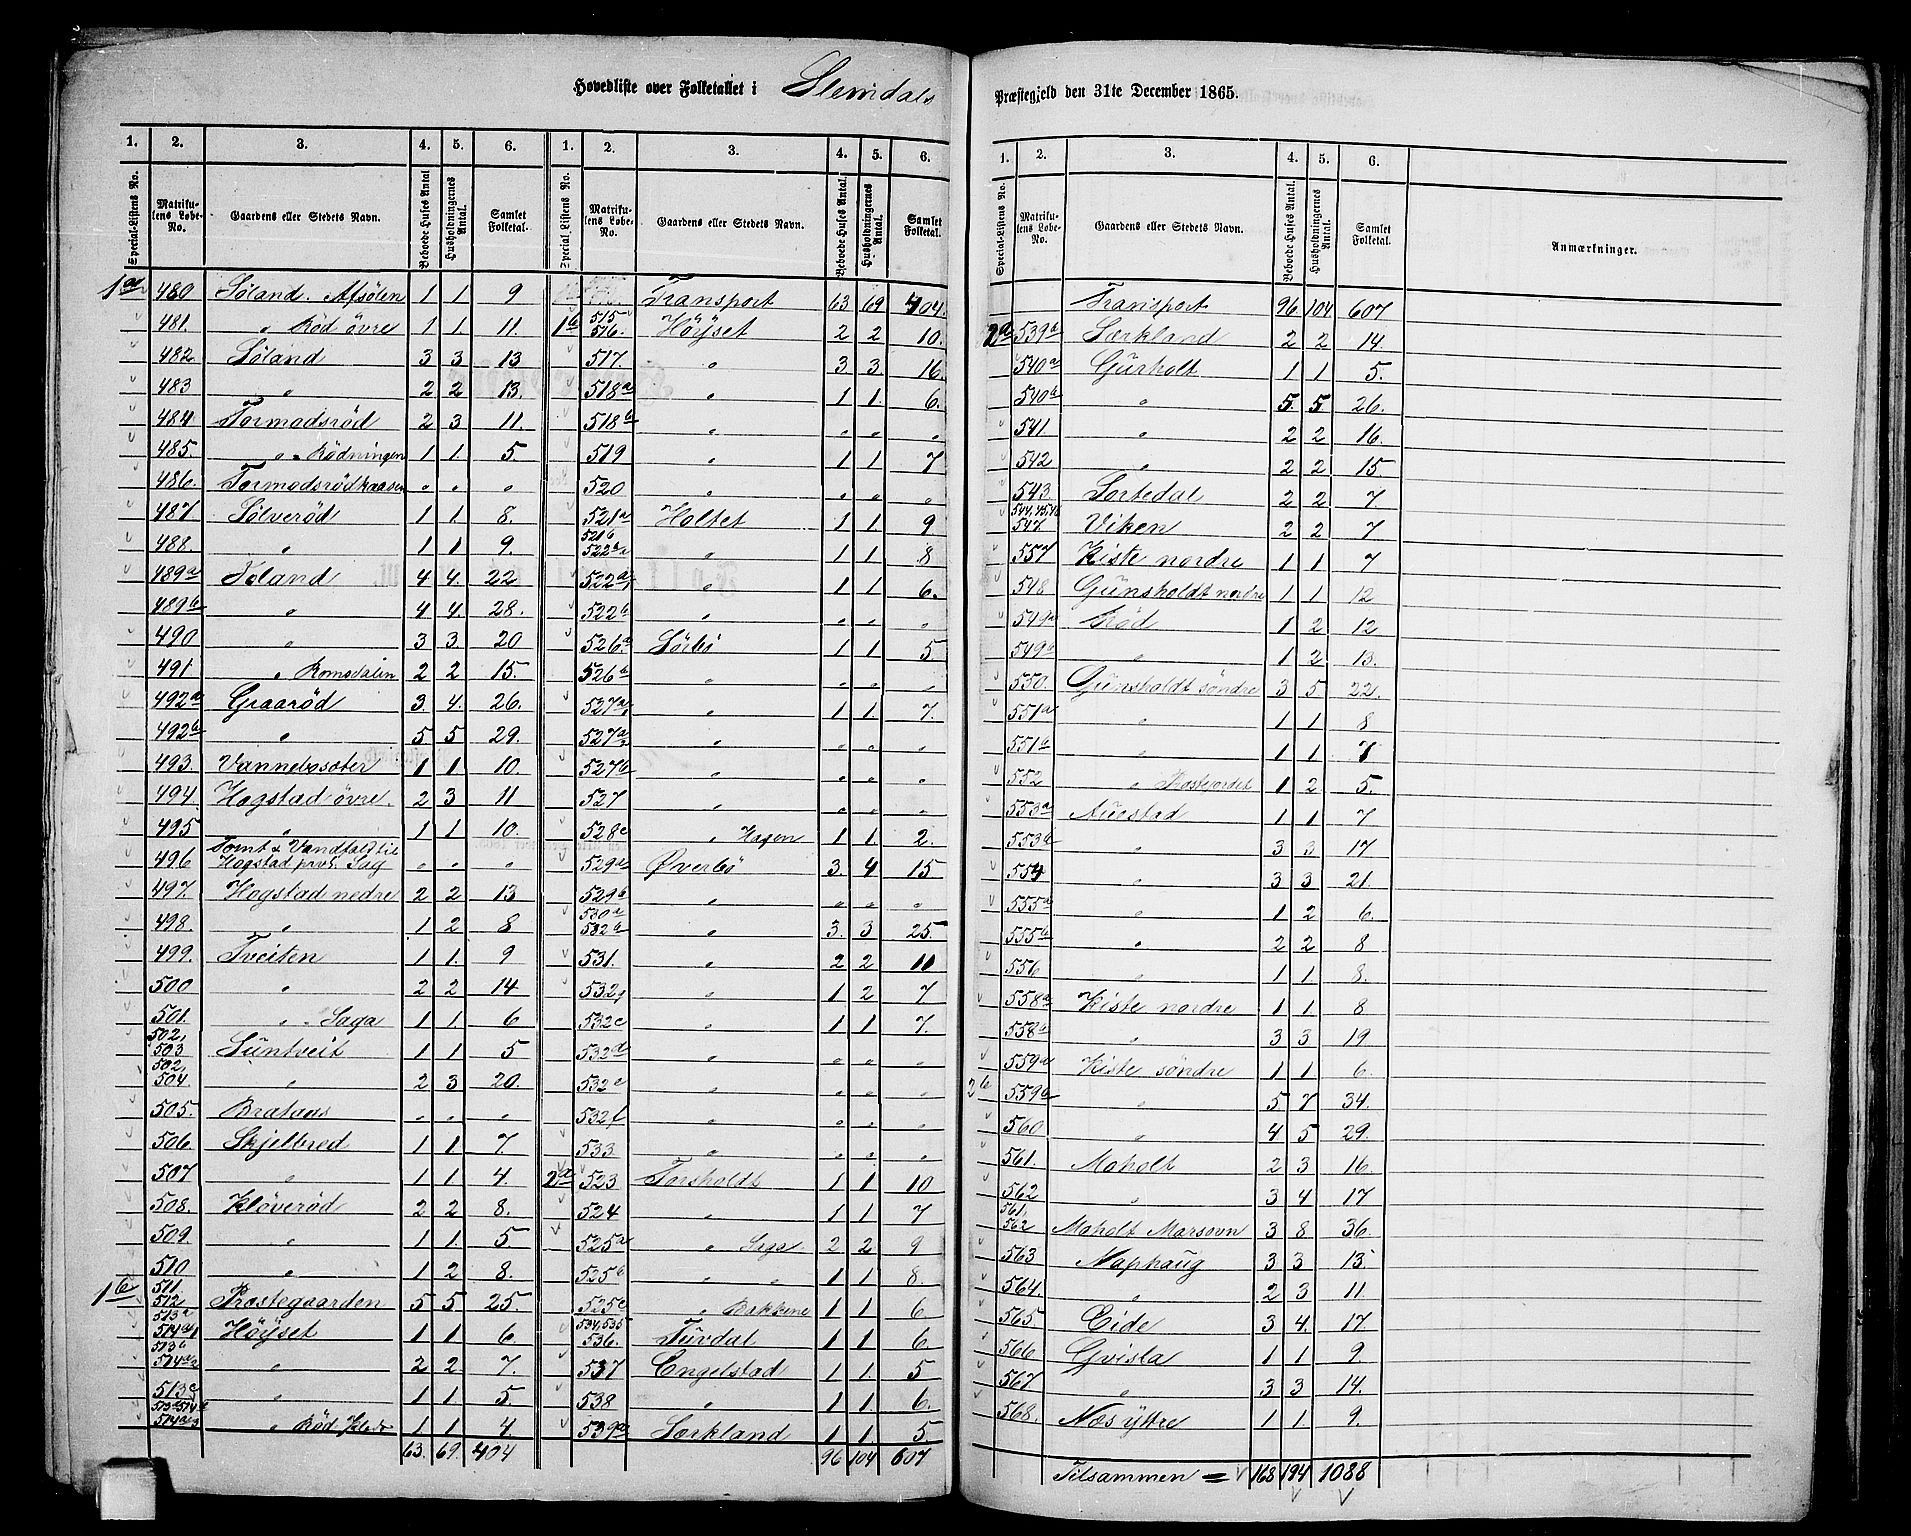 Hovedliste over Folketallet i Slemdals Præstegjeld den 31te December 1865.
1. 2. 3. 4. 5. 6. 1. 2. 3. 4. 5. 6.
Special-Listens No. Matrikulens Løbe-No. Gaardens eller Stedets Navn. Beboede Huses Antal Husholdningernes Antal. Samlet Folketal. Special Listens No. Matrikulens Løbe-No. Gaardens eller Stedets Navn. Beboede Huses Antal. Husholdningernes Antal. Samlet Folketal.
1a 480 Söland. Afsölen 1 1 9
481. " Röd övre 1 1 11.
482 Söland 3 3 13
483 " 2 2 13.
484. Tormodsröd 2 3 11.
485. " " Rödningen 1 1 5.
486. Tormodsrödkaasen " " "
487. Sölveröd 1 1. 8.
488. " 1 1 9.
489a Töland 4 4. 22
489b " 4 4. 28.
490 " 3 3. 20
491 " Romsdalen 2 2 15.
492a Graaröd 3. 4. 26.
492b " 5 5 29.
493. Vannebosæter 1 1 10.
494. Hogstad övre. 2 3 11
495 " 1 1 10.
496 Tomt & Vandfald til Hogstad prvt. Sag " " "
497. Hogstad nedre 2 2 13
498. " 1 2 8
499. Tveiten 1 1. 9
500 " 2 2 14
501. " " Saga 1 1. 6
502, 503 Suntveit 1 1 5
502, 504 " 2 3 20.
505. Brataas " " "
506. Skjelbred 1 1 7
507 " 1 1 4.
508. Klöveröd 2 2 8.
509. " 1 1. 5.
510 " 1 2 8.
1b 511 512 Præstegaarden 5 5 25.
513a 514a1 Höyset 1 1 6.
513b 514a2 " 2 2. 7.
513c " 1 1 5
" Röd 1 1 4
63. 69. 404
Transport 63 69 404.
1b 515 516. Höyset 2 2 10.
517. " 3 3 16.
518a " 1 1. 6.
518b " " " "
519 " 1 1 7
520 " " " "
521a Holtet 1 1 9
521b 522a " 1 1 8
522a " 1 1 6.
522b " " " "
526a Sörbö 1 1 5.
526b " " " "
527a " 1 1. 7.
527a " " " "
527b " " " "
527 " " " "
528c " Hagen 1 1. 2.
529a Överbö 3. 4 15
529b " " " "
530a 532b " 3. 3 25.
531. " 2 2 11
532g " 1 2 7
532c " 1 1 7.
532d " " " "
532e " " " "
532f " " " "
533 " " " "
2a 523 Torsholdt 1 1 10
524 " 1 1 7
525a " Saga 2 2 9
525b " " 1 1 8.
525c " Bakkene 1 1 6
534, 535 536. Tuvdal 1 1 6.
537 Engelstad 1 1. 5
538 " 1 1 6.
539a Sörkland 1 1. 5
96 104 607
1. 2. 3. 4. 5. 6.
Special-Listens No. Matrikulens Løbe-No. Gaardens eller Stedets Navn. Beboede Huses Antal. Husholdningernes Antal. Samlet Folketal. Anmærkninger.
Transport 96 104 607
2a 539a Sörkland 2 2 14.
540a Gurholt 1 1 5.
540b " 5. 5 26.
541 " 2 2 16.
542 " 2 2 15
543. Sortedal 2 2 7.
544, 45, 46 547. Viken 2 2 7
557 Kiste nordre 1 1 7
548 Gunsholdt nordre 1 1 12
549a Röd 1 2 12
549b " 1 2 13.
550. Gunsholdt söndre 3 5 22.
551a " 1 1 8
551b " 1 1 7
552 " 1 2 5.
553a Auestad 1 1 7
553b " 3 3 17
554 " 3 3 21.
555a " 1 2 6.
555b " 2 2 8
556 " 1 1 8.
558a Kiste nordre 1 1 8
558b " 3 3 19
559a Kiste söndre 1 1 6.
2b 559b " 5 7 34.
560 " 4 5 29.
561. Moholt 2 3 16
562 " 3 4 17
561. 562 Moholt Marsovn 3 8 36.
563 Naphaug 3 3 13.
564. " 2 3 11.
565 Eide 3 4. 17.
566 Gvisla 1 1 9.
567 " 3 3 14.
568. Næs yttre 1 1. 9.
Tilsammen = 168 194 1088